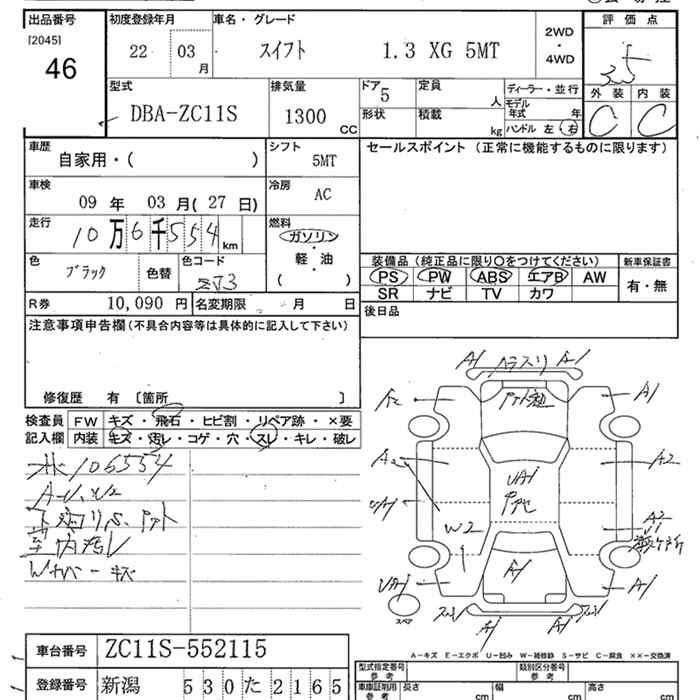 出品番号 初度登録年月 車名・グレード 評価点
[2045] 46 22 03月 スイフト 1.3 XG 5MT 2WD・4WD 3.5
型式 排気量 ドア 5 定員 人 ディーラー・並行 外装 内装
DBA-ZC11S 1300 CC 形状 積載 kg モデル年式 年 C C
ハンドル 左 右
車歴 シフト セールスポイント (正常に機能するものに限ります)
自家用・( ) 5MT
車検 冷房
09年 03月(27日) AC
走行 燃料
10万6千554km ガソリン
色 色替 色コード 軽・油
ブラック ZJ3 ( )
装備品(純正品に限り〇をつけてください) 新車保証書
PS PW ABS エアB AW 有・無
SR ナビ TV カワ
R券 10,090円 名変期限 月 日
後日品
注意事項申告欄(不具合内容等は具体的に記入して下さい)
修復歴 有 [箇所 ]
検査員 FW キズ・飛石・ヒビ割・リペア跡・×要
記入欄 内装 キズ・汚レ・コゲ・穴・スレ・キレ・破レ
106554
A・U、W2
内汚レ
Wカバーキズ
A1 ガラスリ A1
A2 A1
A2 UA1 A2
UA1 A2
W2 U1
UA1 A1 A1
スペア
A1 A1
A-キズ E-エクボ U-凹み W-補修跡 S-サビ C-腐食 XX-交換済
車台番号 ZC11S-552115
登録番号 新潟 530た2165
型式指定番号 参考 類別区分番号 参考
車庫証明用 参考 長さ cm 幅 cm 高さ cm